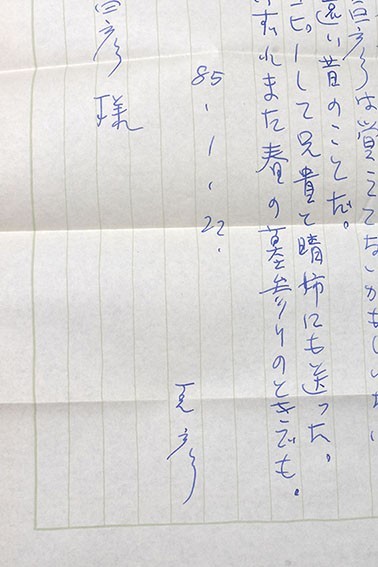 彦は覚えてないかもしれない
遠い昔のことだ。
コピーして兄貴と晴姉にも送った。
いずれまた春の墓参りのときでも。
85・1・22.
彦
彦 様